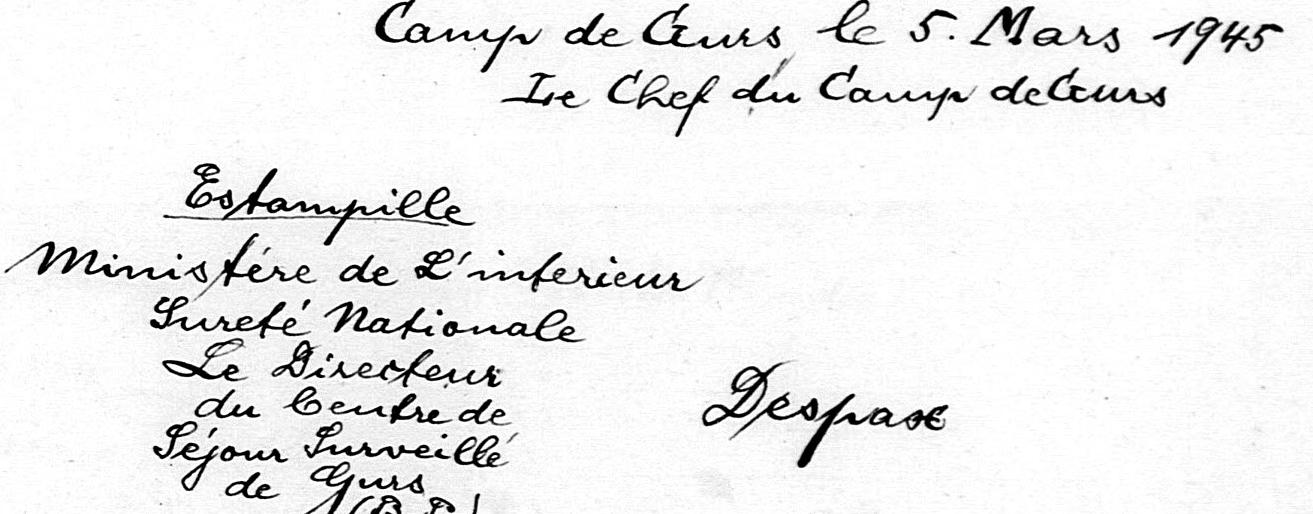 Camp de Gurs, le 5. Mars 1945
Le Chef du Camp de Gurs
Estampille
Ministére de L'interieur
Sureté Nationale
Le Directeur
du Centre de
Séjour Surveillé
de Gurs
Despax
(B.P.)